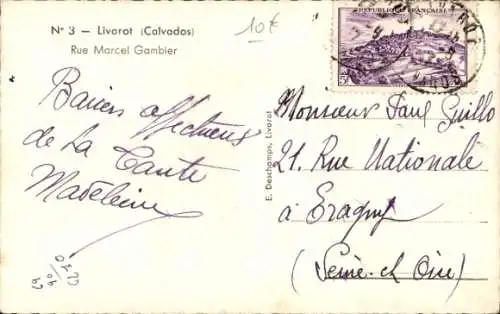 N° 3 — Livarot (Calvados)
Rue Marcel Gambier
10€
RÉPUBLIQUE FRANÇAISE
Baisers affectueux
de La Tante
Madeleine
E. Deschamps, Livarot
Monsieur Paul Guillo
21. Rue Nationale
à Eragny
(Seine-et-Oise)